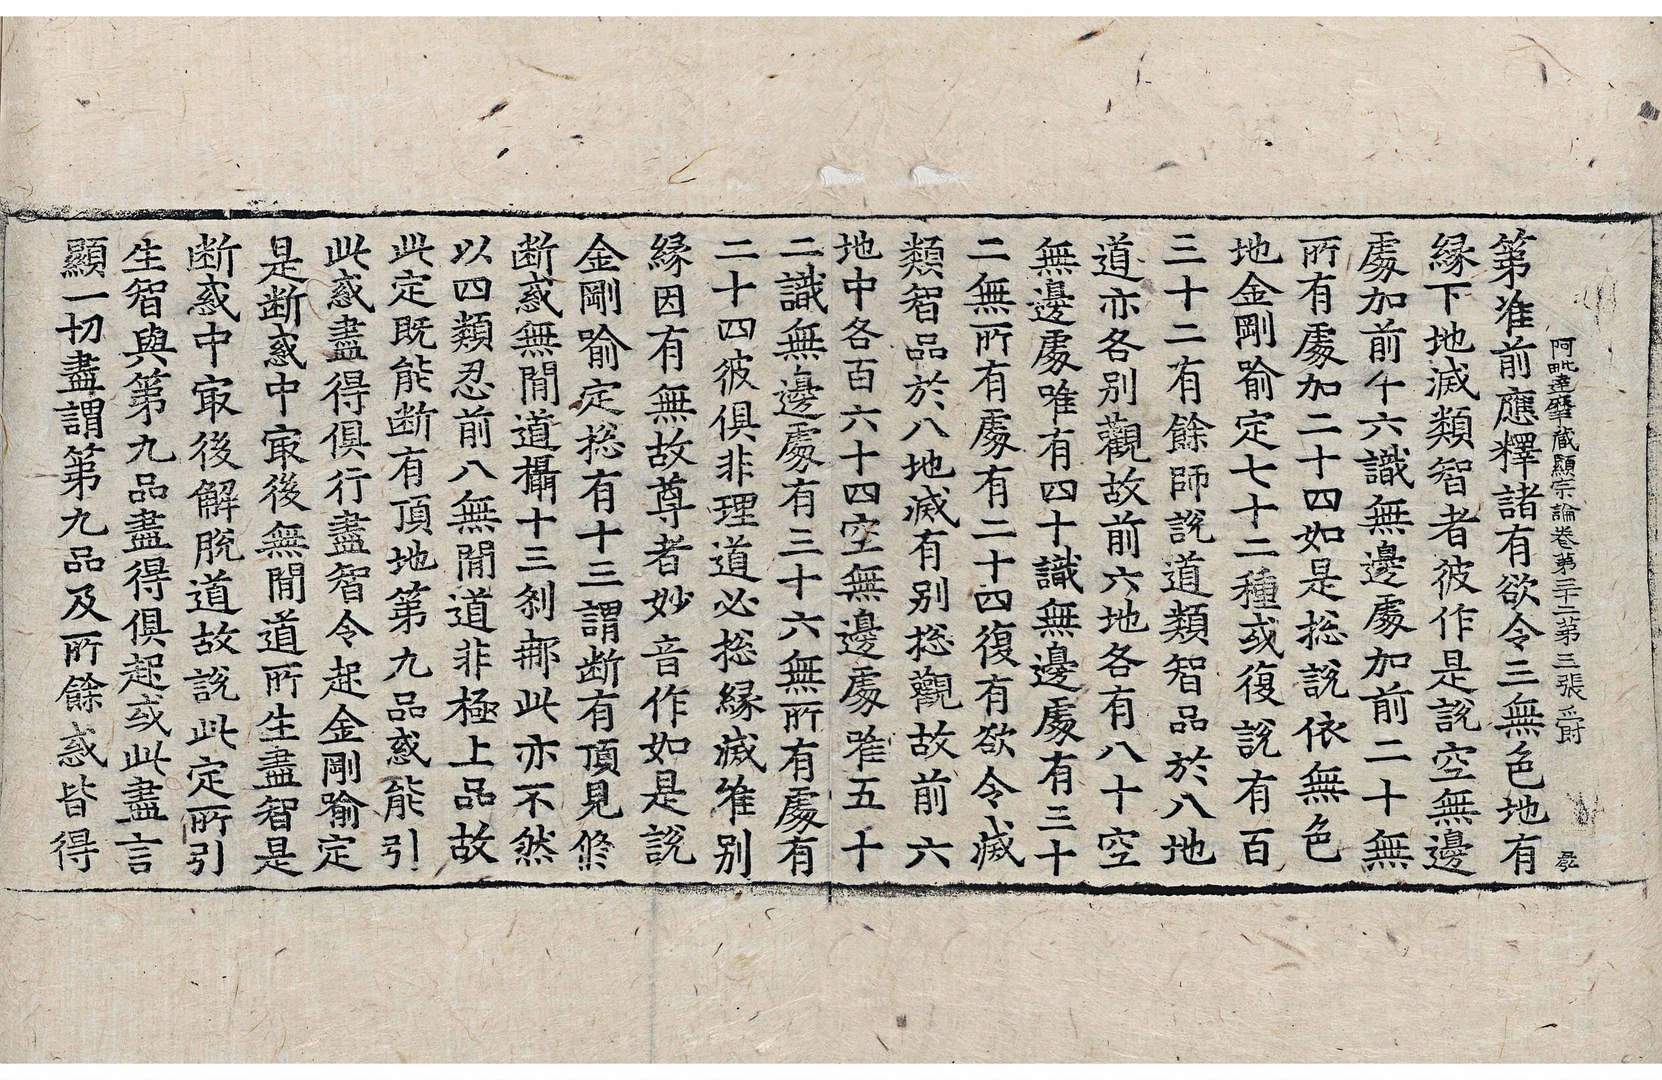 阿毗達磨藏顯宗論卷第三十二第三張 爵
第准前應釋諸有欲令三無色地有
緣下地滅類智者彼作是說空無邊
處加前午六識無邊處加前二十無
所有處加二十四如是捴說依無色
地金剛喻定七十二種或復說有百
三十二有餘師說道類智品於八地
道亦各別觀故前六地各有八十空
無邊處唯有四十識無邊處有三十
二無所有處有二十四復有欲令滅
類智品於八地滅有別捴觀故前六
地中各百六十四空無邊處唯五十
二識無邊處有三十六無所有處有
二十四彼俱非理道必捴緣滅唯別
緣因有無故尊者妙音作如是說
金剛喻定捴有十三謂断有頂見修
断惑無閒道攝十三剎那此亦不然
以四類忍前八無閒道非極上品故
此定既能断有頂地第九品惑能引
此惑盡得俱行盡智令起金剛喻定
是断惑中冣後無閒道所生盡智是
断惑中冣後解脫道故說此定所引
生智與第九品盡得俱起或此盡言
顯一切盡謂第九品及所餘惑皆得